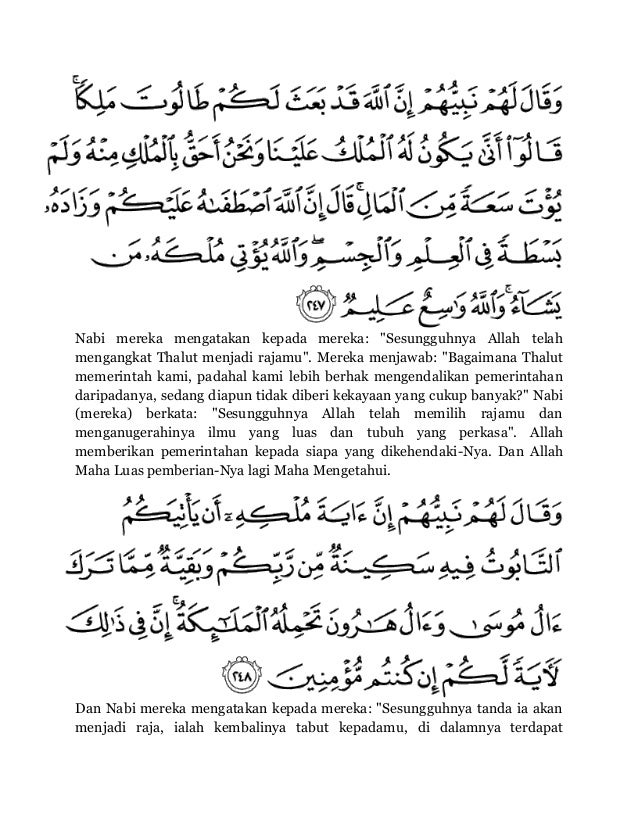 وَقَالَ لَهُمْ نَبِيُّهُمْ إِنَّ ٱللَّهَ قَدْ بَعَثَ لَكُمْ طَالُوتَ مَلِكًۭا ۚ
قَالُوٓا۟ أَنَّىٰ يَكُونُ لَهُ ٱلْمُلْكُ عَلَيْنَا وَنَحْنُ أَحَقُّ بِٱلْمُلْكِ مِنْهُ وَلَمْ
يُؤْتَ سَعَةًۭ مِّنَ ٱلْمَالِ ۚ قَالَ إِنَّ ٱللَّهَ ٱصْطَفَىٰهُ عَلَيْكُمْ وَزَادَهُۥ
بَسْطَةًۭ فِى ٱلْعِلْمِ وَٱلْجِسْمِ ۖ وَٱللَّهُ يُؤْتِى مُلْكَهُۥ مَن
يَشَآءُ ۚ وَٱللَّهُ وَٰسِعٌ عَلِيمٌۭ ٢٤٧
Nabi mereka mengatakan kepada mereka: "Sesungguhnya Allah telah
mengangkat Thalut menjadi rajamu". Mereka menjawab: "Bagaimana Thalut
memerintah kami, padahal kami lebih berhak mengendalikan pemerintahan
daripadanya, sedang diapun tidak diberi kekayaan yang cukup banyak?" Nabi
(mereka) berkata: "Sesungguhnya Allah telah memilih rajamu dan
menganugerahinya ilmu yang luas dan tubuh yang perkasa". Allah
memberikan pemerintahan kepada siapa yang dikehendaki-Nya. Dan Allah
Maha Luas pemberian-Nya lagi Maha Mengetahui.
وَقَالَ لَهُمْ نَبِيُّهُمْ إِنَّ ءَايَةَ مُلْكِهِۦٓ أَن يَأْتِيَكُمُ
ٱلتَّابُوتُ فِيهِ سَكِينَةٌۭ مِّن رَّبِّكُمْ وَبَقِيَّةٌۭ مِّمَّا تَرَكَ
ءَالُ مُوسَىٰ وَءَالُ هَٰرُونَ تَحْمِلُهُ ٱلْمَلَٰٓئِكَةُ ۚ إِنَّ فِى ذَٰلِكَ
لَءَايَةًۭ لَّكُمْ إِن كُنتُم مُّؤْمِنِينَ ٢٤٨
Dan Nabi mereka mengatakan kepada mereka: "Sesungguhnya tanda ia akan
menjadi raja, ialah kembalinya tabut kepadamu, di dalamnya terdapat